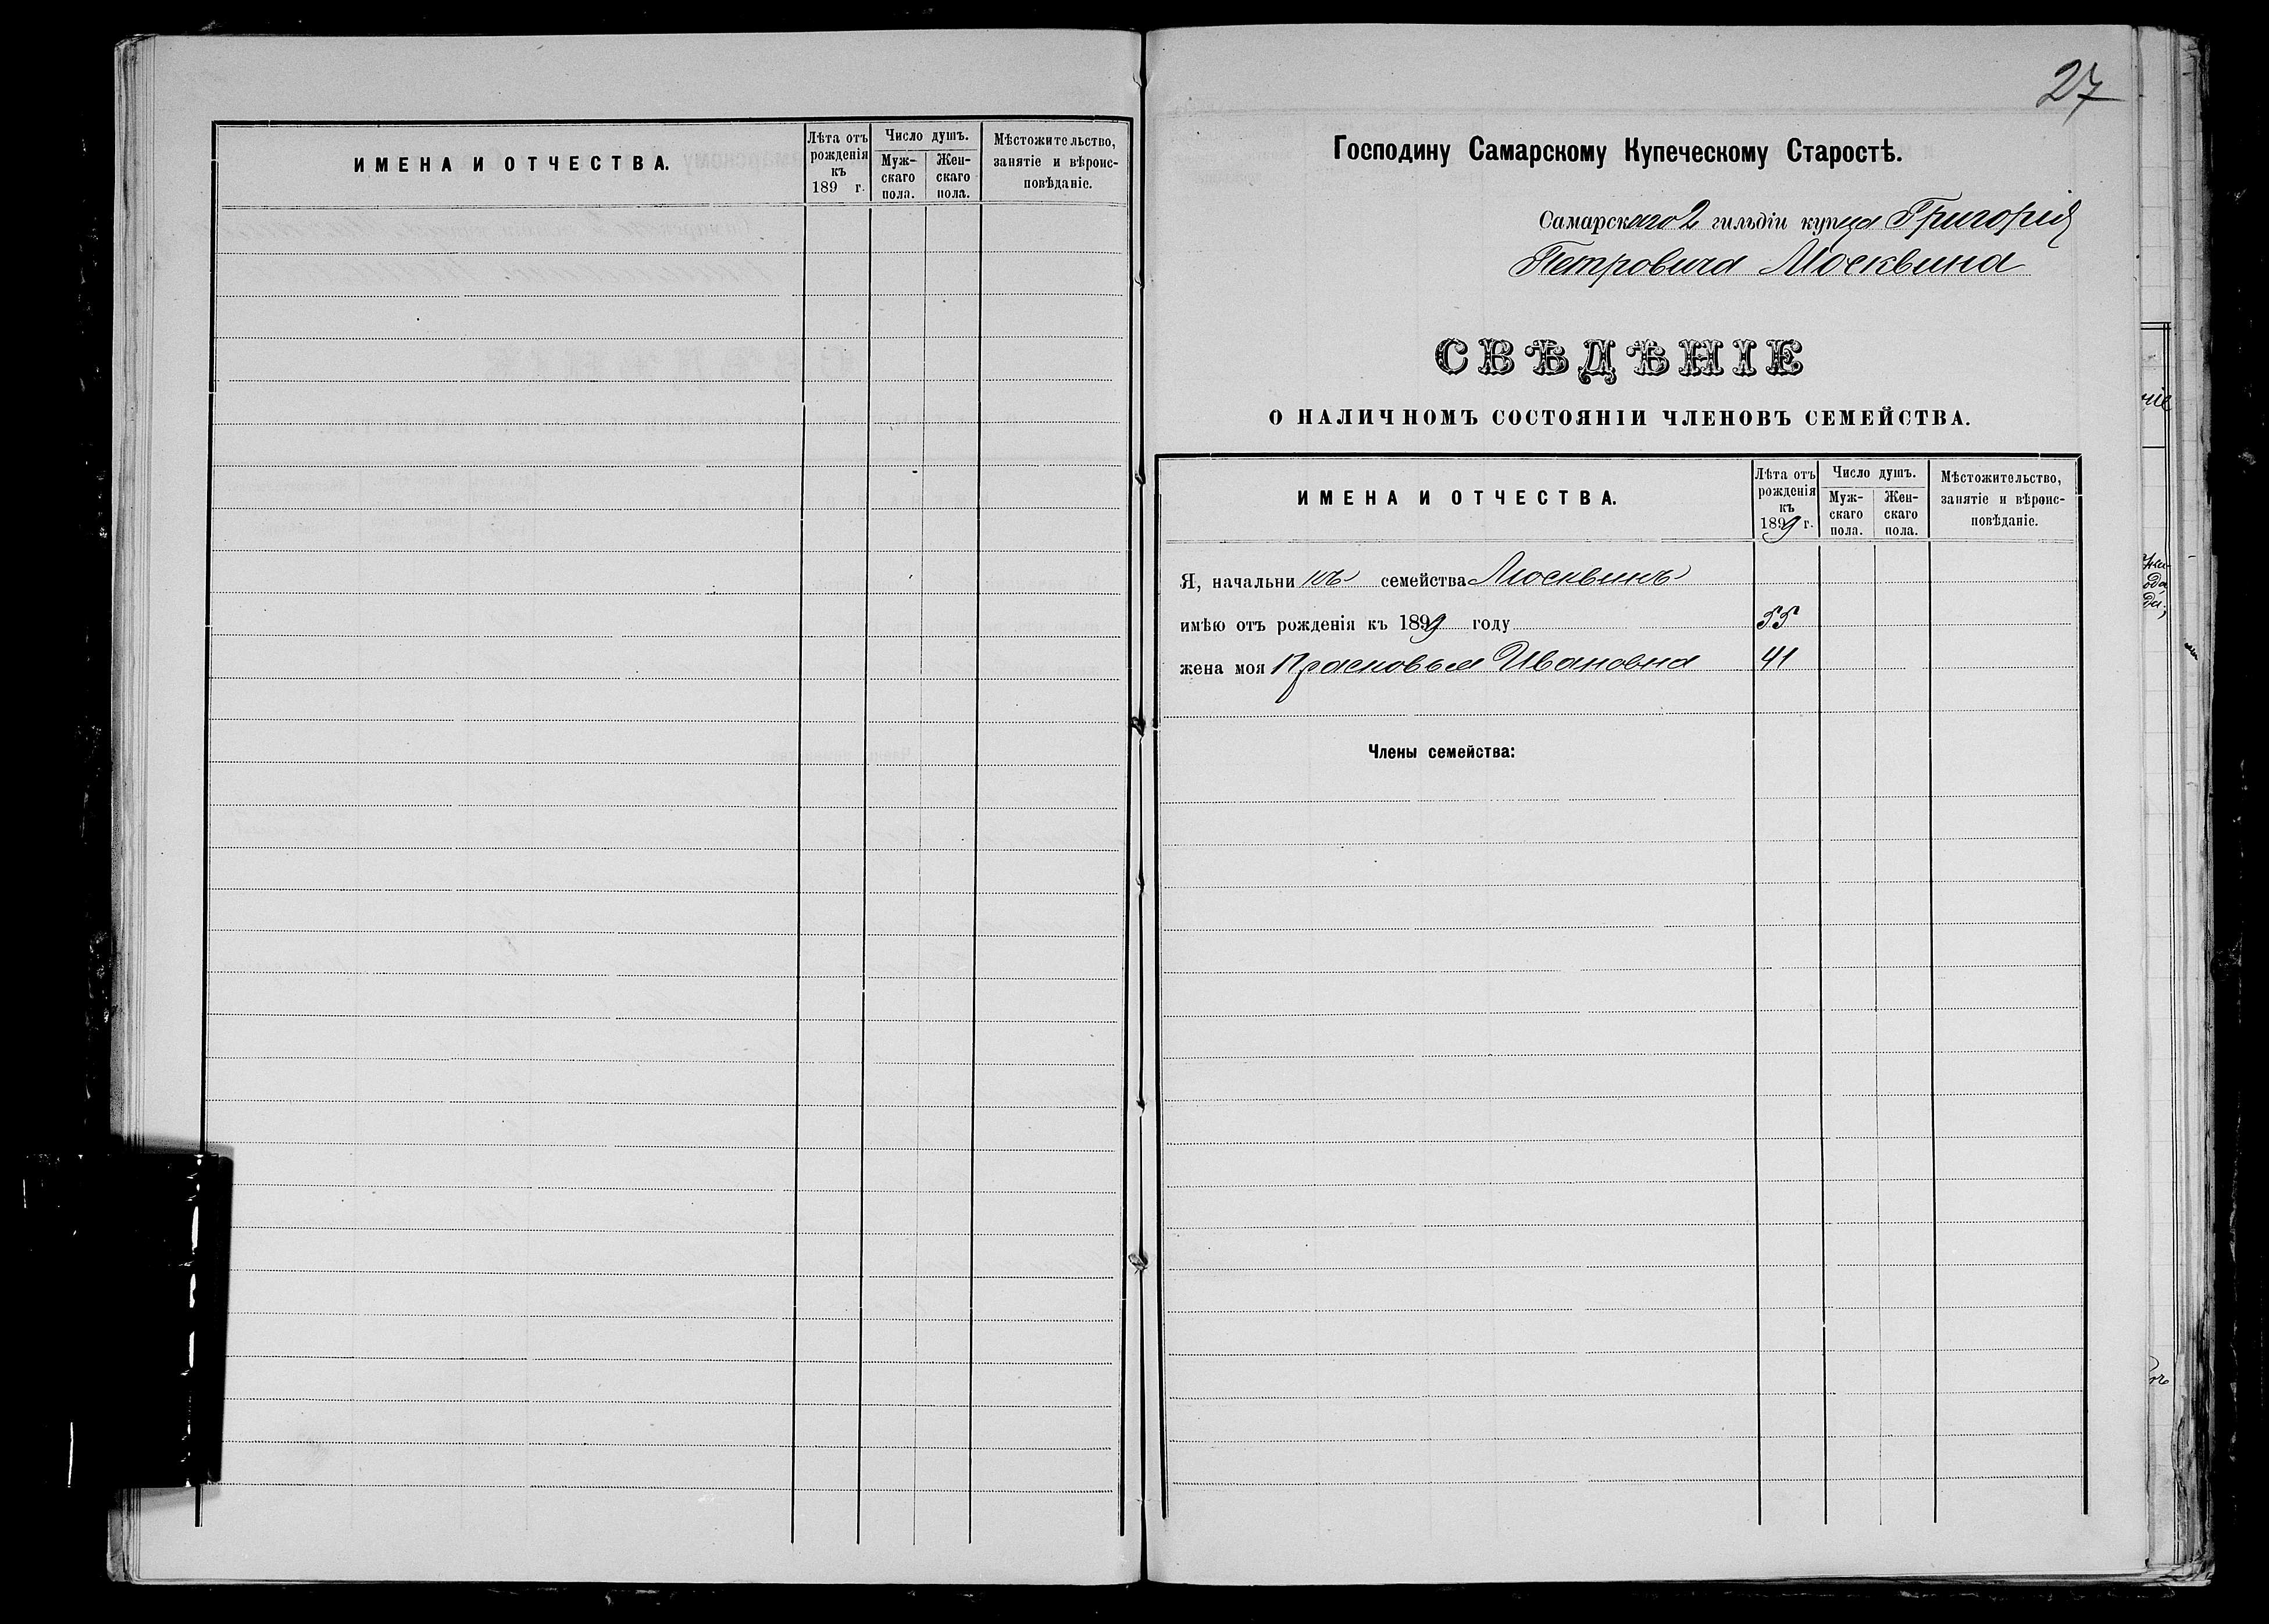 ИМЕНА И ОТЧЕСТВА.
Лѣта отъ рожденія къ 189 г.
Число душъ.
Мужскаго пола.
Женскаго пола.
Мѣстожительство, занятіе и вѣроисповѣданіе.
27
Господину Самарскому Купеческому Старостѣ.
Самарскаго 2 гильдіи купца Григорія
Петровича Москвина
СВѢДѢНІЕ
О НАЛИЧНОМЪ СОСТОЯНІИ ЧЛЕНОВЪ СЕМЕЙСТВА.
ИМЕНА И ОТЧЕСТВА.
Лѣта отъ рожденія къ 1899 г.
Число душъ.
Мужскаго пола.
Женскаго пола.
Мѣстожительство, занятіе и вѣроисповѣданіе.
Я, начальникъ семейства Москвинъ
имѣю отъ рожденія къ 1899 году 55
жена моя Прасковья Ивановна 41
Члены семейства: